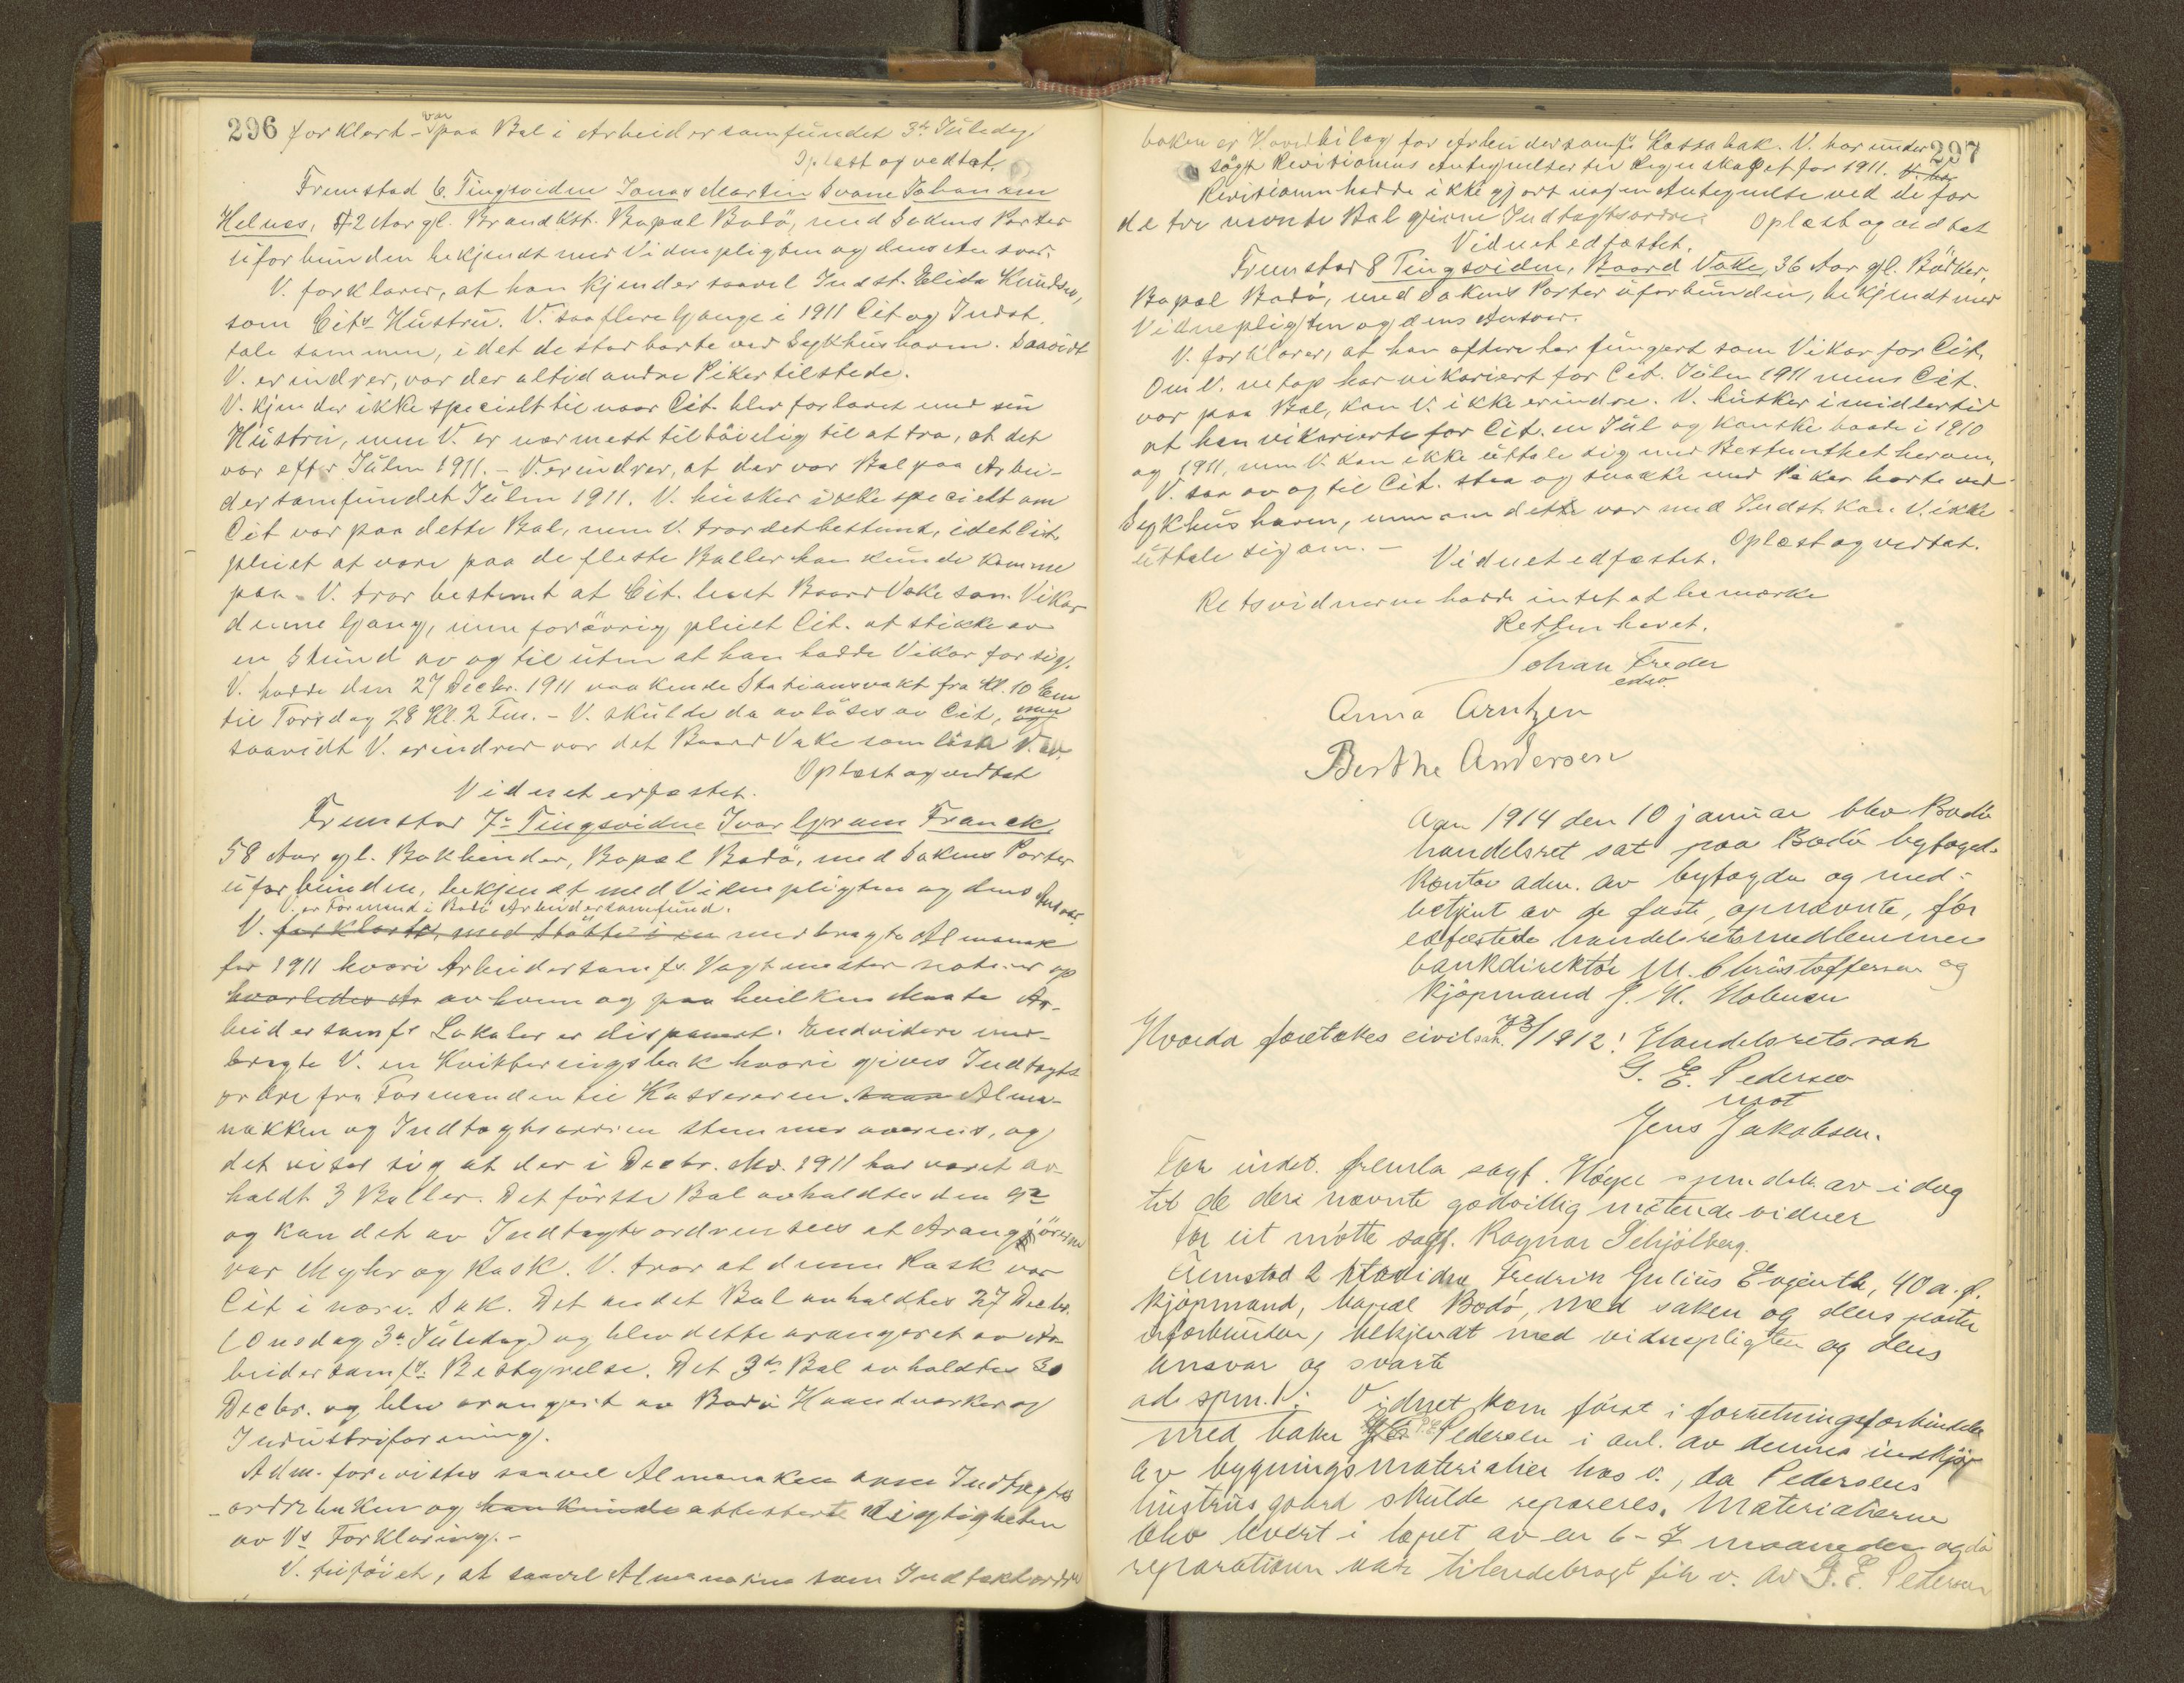 296 forklart - var paa Bal i Arbeidersamfundet 3die Juledag.
Oplæst og vedtat.
Fremstod 6. Tingsvidne Jonas Martin Svane Johansen
Helnes, 42 Aar gl. Brandkst. Bopæl Bodö, med Sakens Parter
uforbunden bekjendt med Vidnepligten og dens Ansvar.
V. forklarer, at han kjender saavel Indst. Elida Knudsen,
som Cits Hustru. V. saa flere Gange i 1911 Cit og Indst.
tale sammen, idet de stod borte ved Sykhushavn. Saavidt
V. erindrer, var der altid andre Piker tilstede.
V. kjender ikke specielt til naar Cit. blev forlovet med sin
Hustru, men V. er nærmest tilböielig til at tro, at det
var efter Julen 1911. - V. erindrer, at der var Bal paa Arbei-
dersamfundet Julen 1911. V. husker ikke specielt om
Cit var paa dette Bal, men V. tror det bestemt, idet Cit.
pleiet at være paa de fleste Baller han kunde komme
paa. V. tror bestemt at Cit. leiet Baard Vake som Vikar
denne Gang, men forövrig pleiet Cit. at stikke av
en Stund av og til uten at han hadde Vikar for sig.
V. hadde den 27 Decbr. 1911 vaakende Stationsvakt fra Kl. 10 Em
til Torsdag 28 Kl. 2 Fm. - V. skulde da avlöses av Cit, men
saavidt V. erindrer var det Baard Vake som löste V. av.
Oplæst og vedtat
Vidnet edfæstet.
Fremstod 7de Tingsvidne Ivar Gram Franck,
58 Aar gl. Bokbinder, Bopæl Bodö, med Sakens Parter
uforbunden, bekjendt med Vidnepligten og dens Ansvar.
V. er Formand i Bodö Arbeidersamfund.
V. forklarte, med Stötte i en medbragte Almanak
for 1911 hvori Arbeidersamfs. Vagtmester noterer op
hvorledes Ar av hvem og paa hvilken Maate Ar-
beidersamfs Lokaler er disponert. Endvidere med-
bragte V. en Kvitteringsbok hvori gives Indtægts
ordre fra Formanden til Kassereren. Alma-
nakken og Indtægtsordren stemmer overens, og
det viser sig at der i Decbr. Md. 1911 har været av-
holdt 3 Baller. Det förste Bal avholdtes den
og kan det av Indtægtsordren sees at Arangjörerne
var Myhr og Rask. V. tror at denne Rask var
Cit i nærv. Sak. Det andet Bal avholdtes 27 Decbr.
(Onsdag 3die Juledag) og blev dette arangeret av Ar-
beidersamfs. Bestyrelse. Det 3die Bal avholdtes 30
Decbr. og blev arangjert av Bodö Haandværker og
Industriforening.
Adm. forevistes saavel Almanaken som Indtægts
-ordreboken og han kunde attesterte Rigtigheten
av Vs Forklaring. -
V. tilföiet, at saavel Almanakken som Indtæktsordre
297
boken er Hovedbilag for Arbeidersamfs Kassabok. V. har under
sögt Revisionens Antegnelser til Regnskapet for 1911. V. har
Revisionen hadde ikke gjort nogen Antegnelse ved de for
de tre nævnte Bal givne Indtægtsordre. Oplæst og vedtat
Vidnet edfæstet.
Fremstod 8 Tingsvidne, Baard Vake, 36 Aar gl. Bödker,
Bopæl Bodö, med Sakens Parter uforbunden, bekjendt med
Vidnepligten og dens Ansvar.
V. forklarer, at han oftere har fungert som Vikar for Cit.
Om V. netop har vikariert for Cit. Julen 1911 mens Cit.
var paa Bal, kan V. ikke erindre. V. husker imidlertid
at han vikarierte for Cit. en Jul og kanske baade i 1910
og 1911, men V. kan ikke uttale sig med Bestemthet herom.
V. saa av og til Cit. staa og snakke med Piker borte ved
Sykhushavn, men om dette var med Indst. kan V. ikke
uttale sig om. - Oplæst og vedtat.
Vidnet edfæstet.
Retsvidnerne hadde intet at bemærke
Retten hævet.
Johan Freder
edsv.
Anna Arntzen
Berthe Andersen
Aar 1914 den 10 januar blev Bodö
handelsret sat paa Bodö byfoged-
kontor adm. av byfogden og med-
betjent av de faste, opnævnte, før
edfæstede handelsretsmedlemmer
bankdirektør M. Christoffersen og
kjøpmand J. H. Holmen
Hvorda foretokes civilsak 73/1912: Handelsretssak
G. E. Pedersen
mot
Jens Jakobsen.
For indst. fremla sagf. Høyer spm. dat. av idag
til de deri nævnte godvillig møtende vidner
For cit møtte sagf. Ragnar Schjölberg.
Fremstod 2 vidne Fredrik Julius Evjenth, 40 a. g.
kjøpmand, bopæl Bodö, med saken og dens parter
uforbunden, bekjendt med vidnepligten og dens
ansvar og svarte
ad. spm. 1: Vidnet kom först i forretningsforbindelse
med baker Pedersen i anl. av dennes indkjøp
av bygningsmaterialier hos v., da Pedersens
hustrus gaard skulde repareres. Materialierne
blev levert i løpet av en 6-7 maaneder og da
reparationen var tilendebragt fik v. av G. E. Pedersen